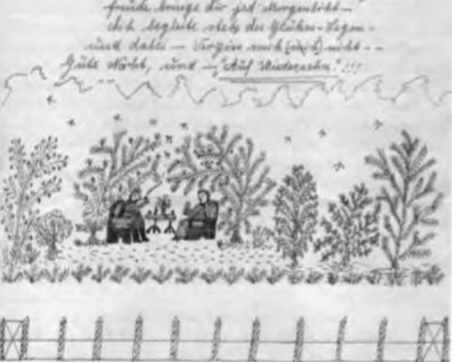 Freude bringe dir jed' Morgenlicht –
dich begleite stets des Glückes-Segen –
und dabei – Vergiss mich (nicht) nicht – –
Gute Nacht, und – "Auf Wiedersehn." !!!